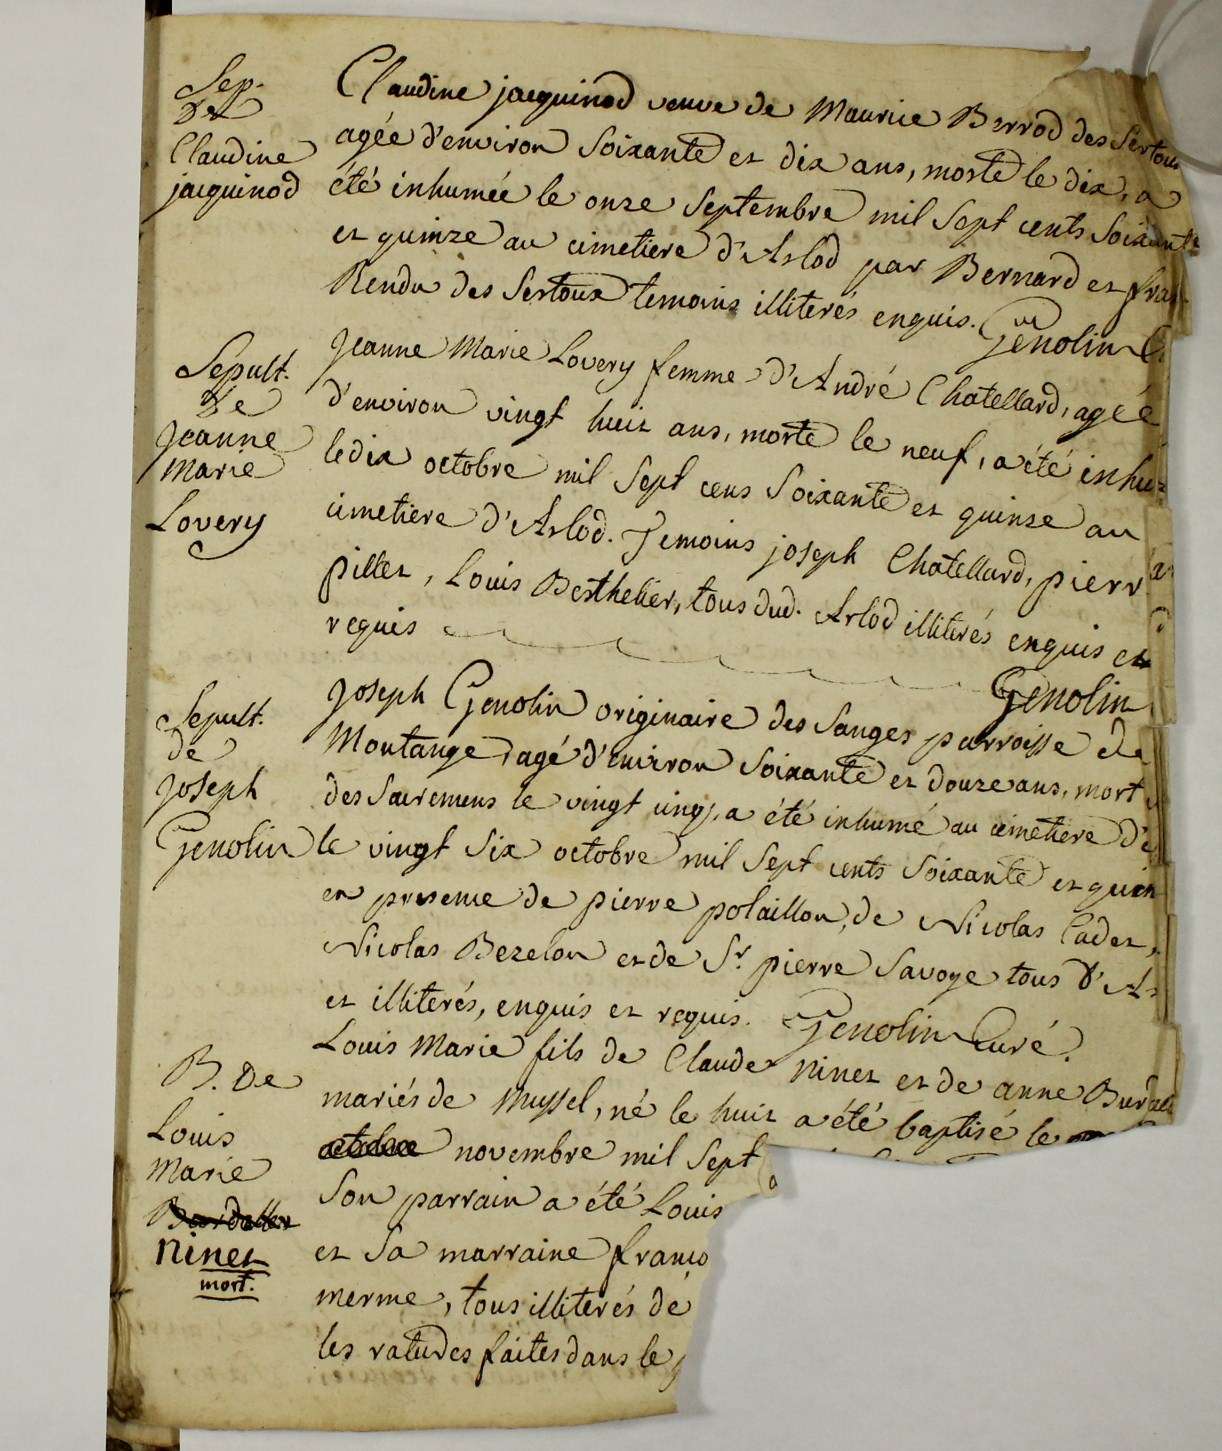 Sep.
de
Claudine
jacquinod
Claudine jacquinod veuve de Maurice Berrod des Sertoux
agée d'environ Soixante et dix ans, morte le dix, a
été inhumée le onze Septembre mil Sept cents Soixante
et quinze au cimetiere d'Arlod par Bernard et fran
Rendu des Sertoux temoins illiterés enquis. Genolin C
Sepult.
de
Jeanne
Marie
Lovery
Jeanne Marie Lovery femme d'André Chatellard, agée
d'environ vingt huit ans, morte le neuf, a été inhu
le dix octobre mil Sept cens Soixante et quinze au
cimetiere d'Arlod. Temoins joseph Chatellard, pierr
pillet, Louis Berthelier, tous dud. Arlod illiterés enquis et
requis
Genolin
Sepult.
de
Joseph
Genolin
Joseph Genolin originaire des Sanges parroisse de
Montange, agé d'environ Soixante et douze ans, mort
des Sacremens le vingt cinq, a été inhumé au cimetiere d'A
le vingt Six octobre mil Sept cents Soixante et quin
en presence de pierre polaillon, de Nicolas Cadet,
Nicolas Bezelon et de Sr. pierre Savoye tous d'Ar
et illiterés, enquis et requis. Genolin Curé.
B. De
Louis
Marie
Burdallet
Ninet
mort.
Louis Marie fils de Claude Ninet et de anne Burdal
mariés de Mussel, né le huit a été baptisé le
octobre novembre mil Sept
Son parrain a été Louis
et Sa marraine franço
merme, tous illiterés de
les ratures faites dans le